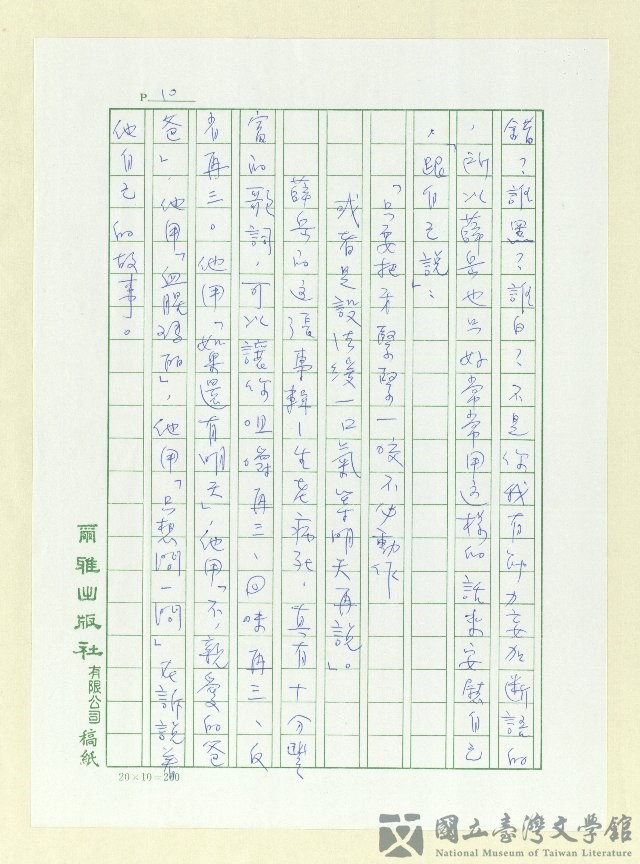 P 10
錯?誰黑?誰白?不是你我有能力妄加斷語的
,所以薛岳也只好常常用這樣的話來安慰自己
,「跟自己說」:
「只要把牙緊緊一咬不必動作
或者是設法緩一口氣等明天再說」。
薛岳的這張專輯-生老病死,真有十分豐
富的歌詞,可以讓你咀嚼再三、回味再三、反
省再三。他用「如果還有明天」,他用「不,親愛的爸
爸」,他用「血腥瑪麗」,他用「只想問一問」在訴說著
他自己的故事。
爾雅出版社有限公司稿紙
20×10=200
國立臺灣文學館
National Museum of Taiwan Literature